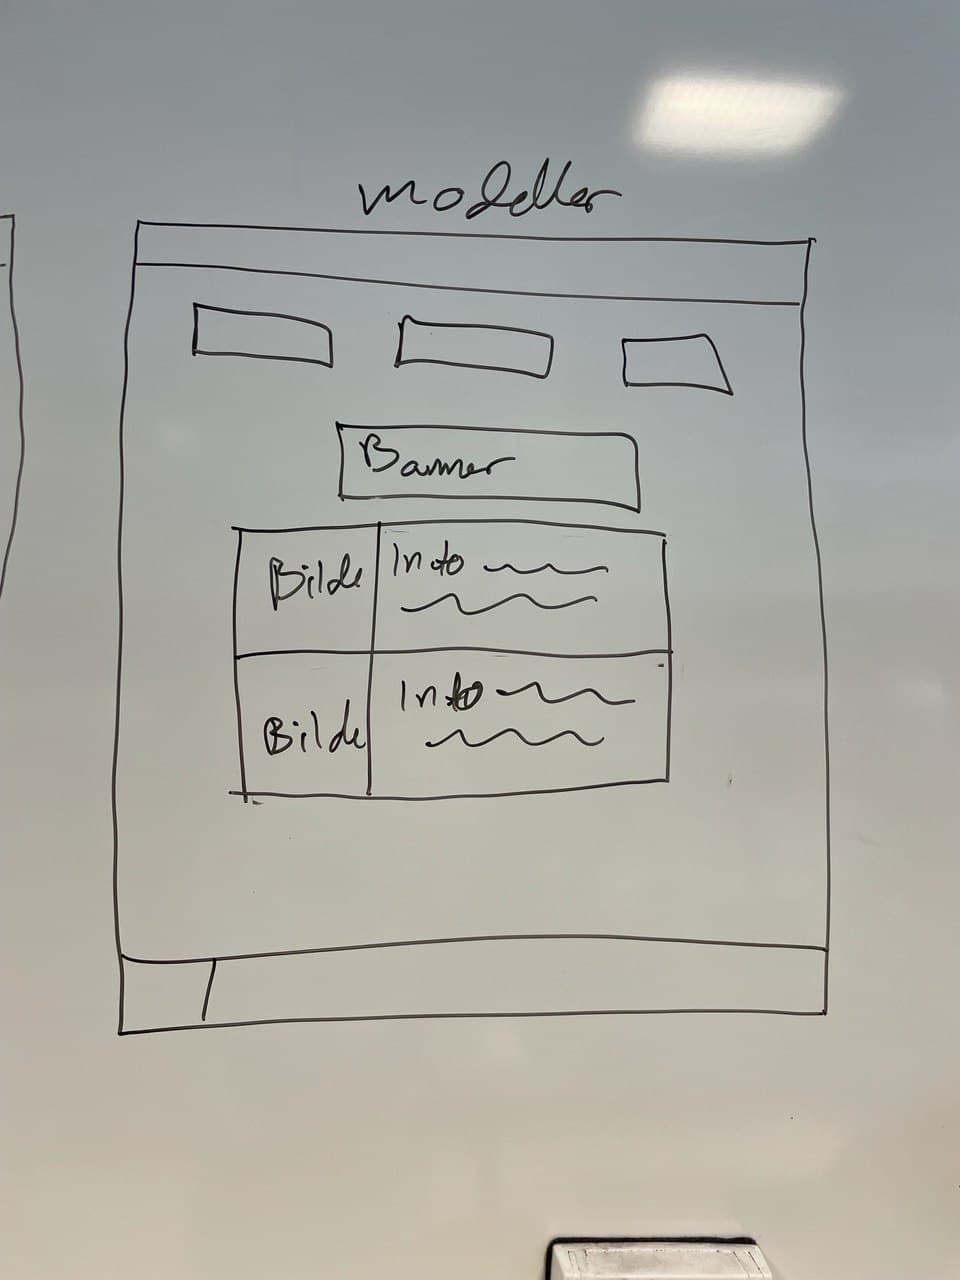 modeller
Banner
Bilde Info
Bilde Info